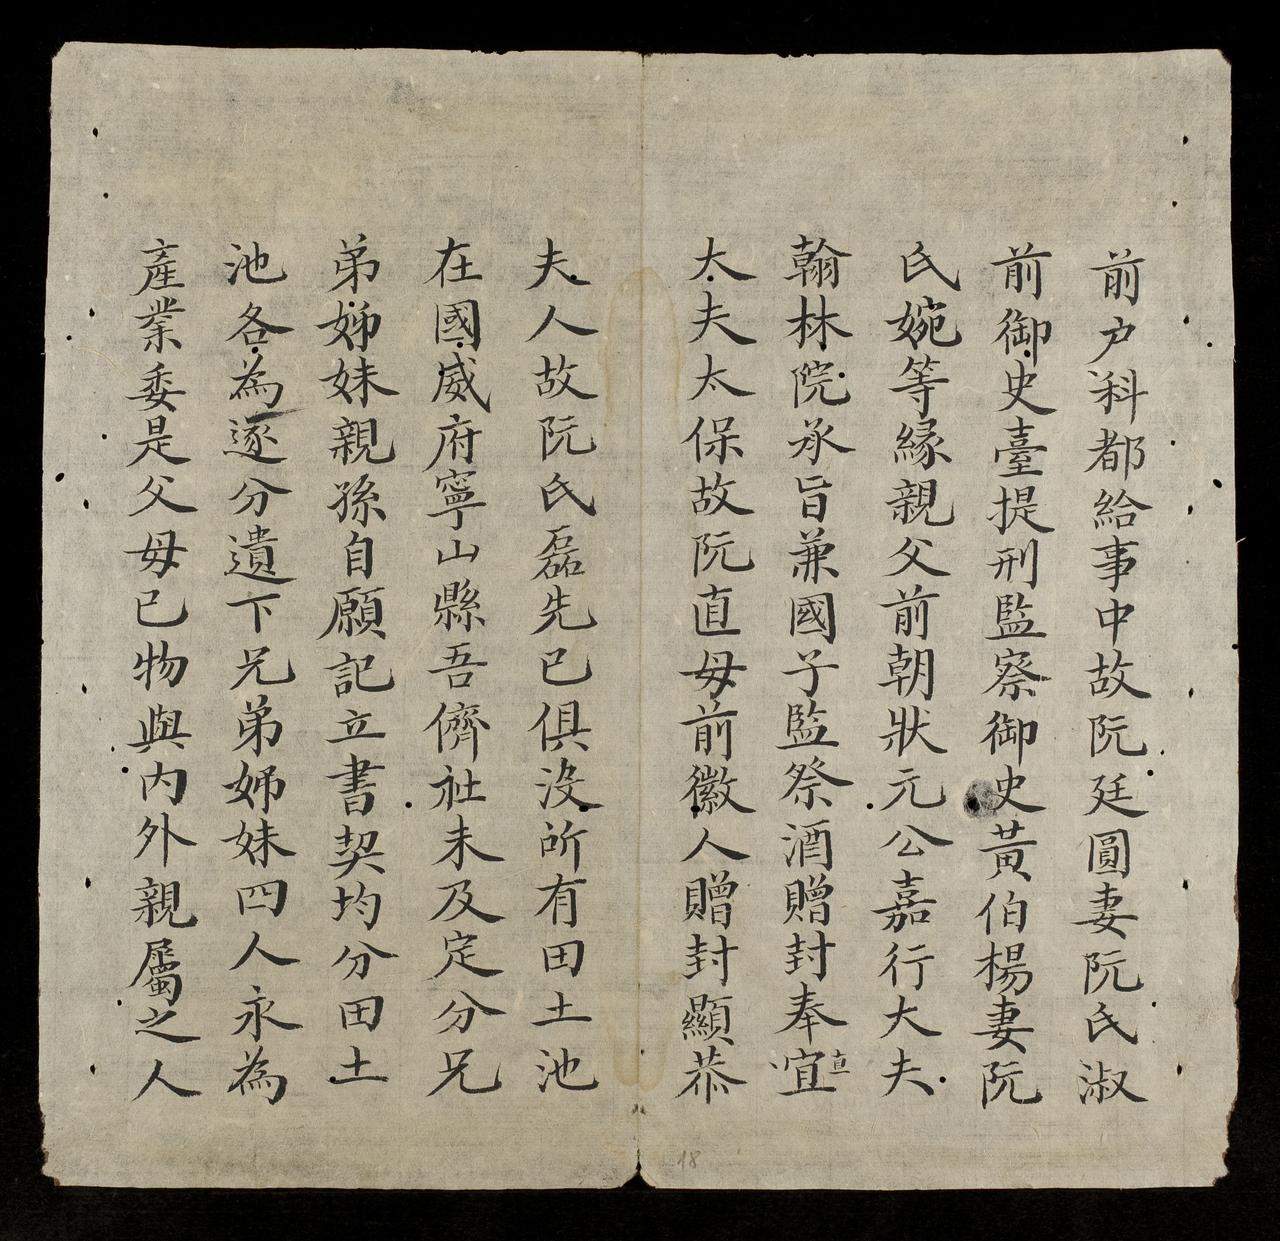 前户科都給事中故阮廷圓妻阮氏淑
前御史臺提刑監察御史黃伯楊妻阮
氏婉等緣親父前朝狀元公嘉行大夫
翰林院承旨兼國子監祭酒贈封奉宜直
大夫太保故阮直母前徽人贈封顯恭
夫人故阮氏磊先已俱没所有田土池
在國威府寧山縣吾儕社未及定分兄
弟姊妹親孫自願記立書契均分田土
池各為逐分遺下兄弟姊妹四人永為
產業委是父母已物與内外親屬之人
18